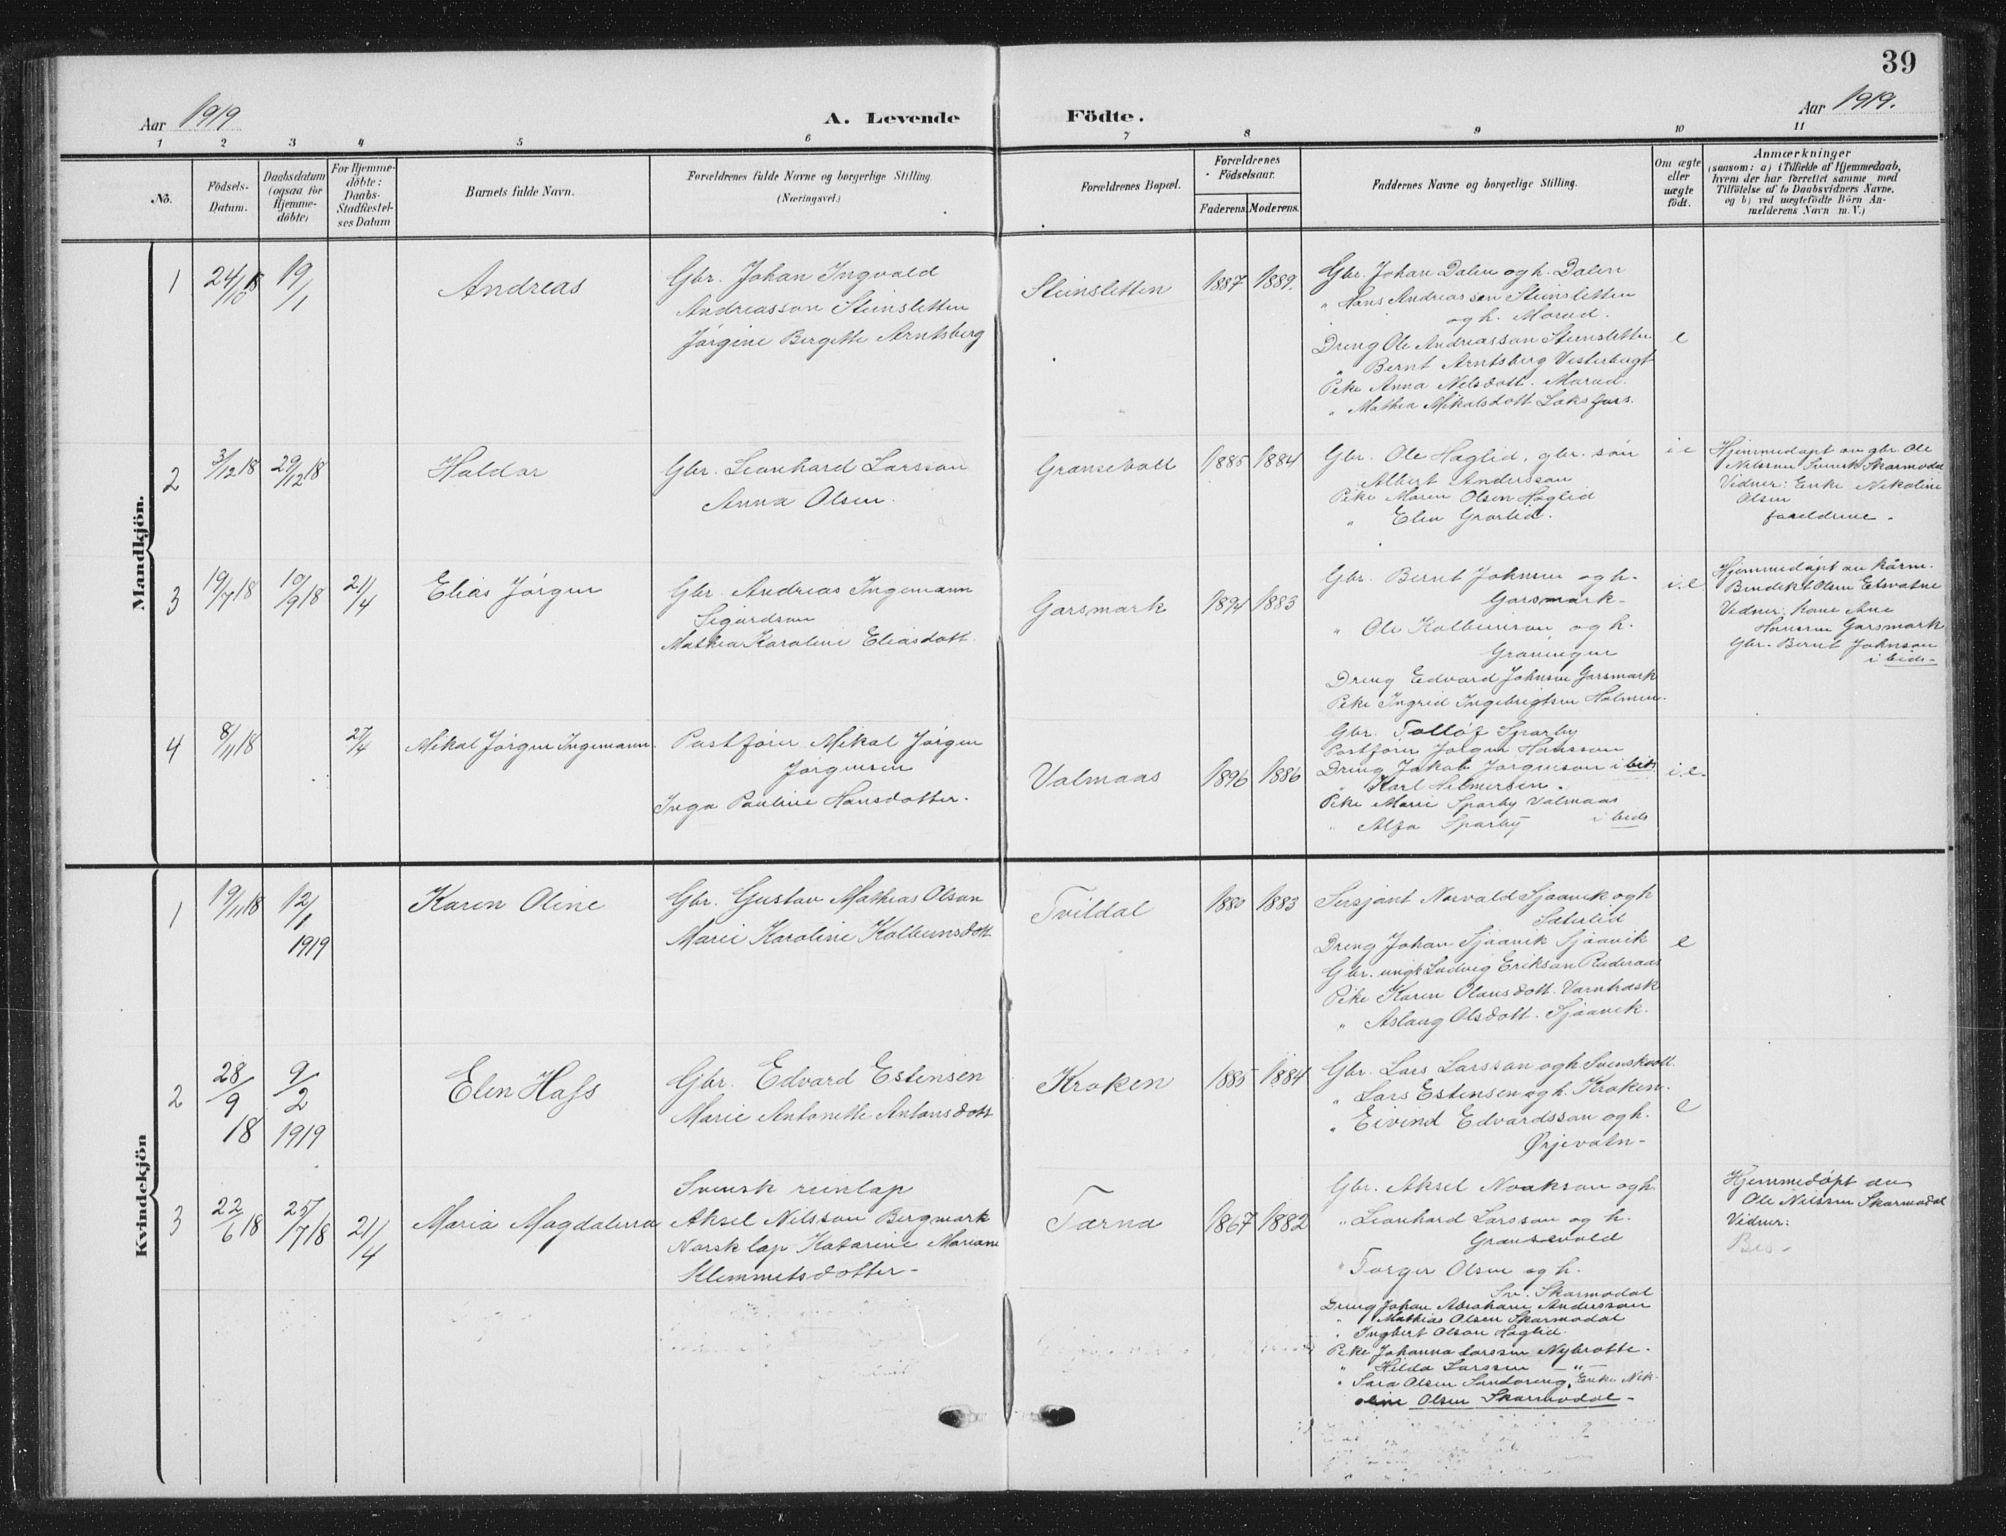 39
Aar 1919
A. Levende Födte.
Aar 1919.
1 2 3 4 5 6 7 8 9 10 11
No.
Födsels-
Datum.
Daabsdatum
(ogsaa for
Hjemme-
döbte)
For Hjemme-
döbte:
Daabs-
Stadfæstel-
ses Datum
Barnets fulde Navn.
Forældrenes fulde Navne og borgerlige Stilling.
(Næringsvei.)
Forældrenes Bopæl.
Forældrenes
Födselsaar.
Faderens. Moderens.
Faddernes Navne og borgerlige Stilling.
Om ægte
eller
uægte
födt.
Anmærkninger
(saasom: a) i Tilfælde af Hjemmedaab,
hvem der har forrettet samme med
Tilföielse af to Daabsvidners Navne.
og b) ved uægtefödte Börn An-
melderens Navn m. V.)
Mandkjön.
1
24/10 18
19/1
Andreas
Gbr. Johan Ingvald
Andreassan Steinsletten
Jørgine Bergitte Arntsberg
Steinsletten
1887 1889.
Gbr. Johan Dalen og h. Dalen
" Hans Andreassen Steinsletten
og h. Marud.
Dreng Ole Andreassan Steinsletten
" Bernt Arntsberg Vesterbugt
Pike Anna Nelsdott. Marud.
" Mathea Mikalsdott Laksfors.
e
2
3/12 18
29/12 18
Haldor
Gbr. Leonhard Larsson
Anna Olsen.
Grensevoll
1885 1884
Gbr. Ole Haglid, gbr. søn
Albert Anderssan
Pike Maren Olsen Haglid
" Elen Grorlid.
i e
Hjemmedøpt av gbr. Ole
Nilssen Svensk Skarmodal
Vidner: Enke Nikoline
Olsen
foreldrene.
3
19/7 18
10/9 18
21/4
Elias Jørgen
Gbr. Andreas Ingemann
Sigurdson
Mathea Karoline Eliasdott.
Garsmark
1894 1883
Gbr. Bernt Johnsen og h.
Garsmark-
" Ole Kolbeinson og h.
Graningen
Dreng Edvard Johnsen Garsmark
Pike Ingrid Ingebrigtsen Holmen.
i.e
Hjemmedøpt av
Bendikt Olsen Elsvatne
Vidner: kone Ane
Hansen Garsmark
Gbr. Bernt Johnson
i beds-
4
8/11 18
27/4
Mikal Jørgen Ingemann.
Postfører Mikal Jørgen
Jørgensen
Inga Pauline Hansdotter.
Valmaas
1896 1886
Gbr. Tolløf Sparby
Postfører Jørgen Hansson
Dreng Jakob Jørgenson i beds
" Karl Helmersen.
Pike Marie Sparby Valmaas
" Alfa Sparby i beds
i.e.
Kvindekjön
1
19/11 18
12/1
1919
Karen Oline
Gbr. Gustav Mathias Olsan
Marie Karoline Kolbeinsdott
Tvildal
1880 1883
Sersjant Norvald Sjaavik og h
Sæterlid
Dreng Johan Sjaavik Sjaavik
Gbr. ungk Ludvig Eriksan Ruderaas
Pike Karen Olausdott. Varntræsk
" Aslaug Olsdott. Sjaavik.
e
2
28/9
18
9/2
1919
Elen Hass
Gbr. Edvard Estensen
Marie Antonette Antonsdott
Kroken
1885 1884
Gbr. Lars Larssan og h Svenskvoll
" Lars Estensen og h. Kroken.
" Eivind Edvardssan og h.
Ørjevatn-
e
3
22/6 18
25/7 18
21/4
Maria Magdalena
Svensk reinlap
Aksel Nilssan Bergmark
Norsk lap Katarine Mariane
Klemmetsdotter-
Tærna
1867 1882
Gbr. Aksel Noakson og h
" Leonhard Larsson og h.
Grensevold
" Torger Olsen og h.
Sv. Skarmodal
Dreng Johan Abraham Anderssan
" Mathias Olsen Skarmodal
" Ingbert Olsan Haglid.
Pike Johanna Larssen Nybrotte.
" Hilda Larssen —"—
" Sara Olsen Sandvreng, Enke Nik-
oline Olsen Skarmodal-
Hjemmedøpt av
Ole Nilssen Skarmodal
Vidner: